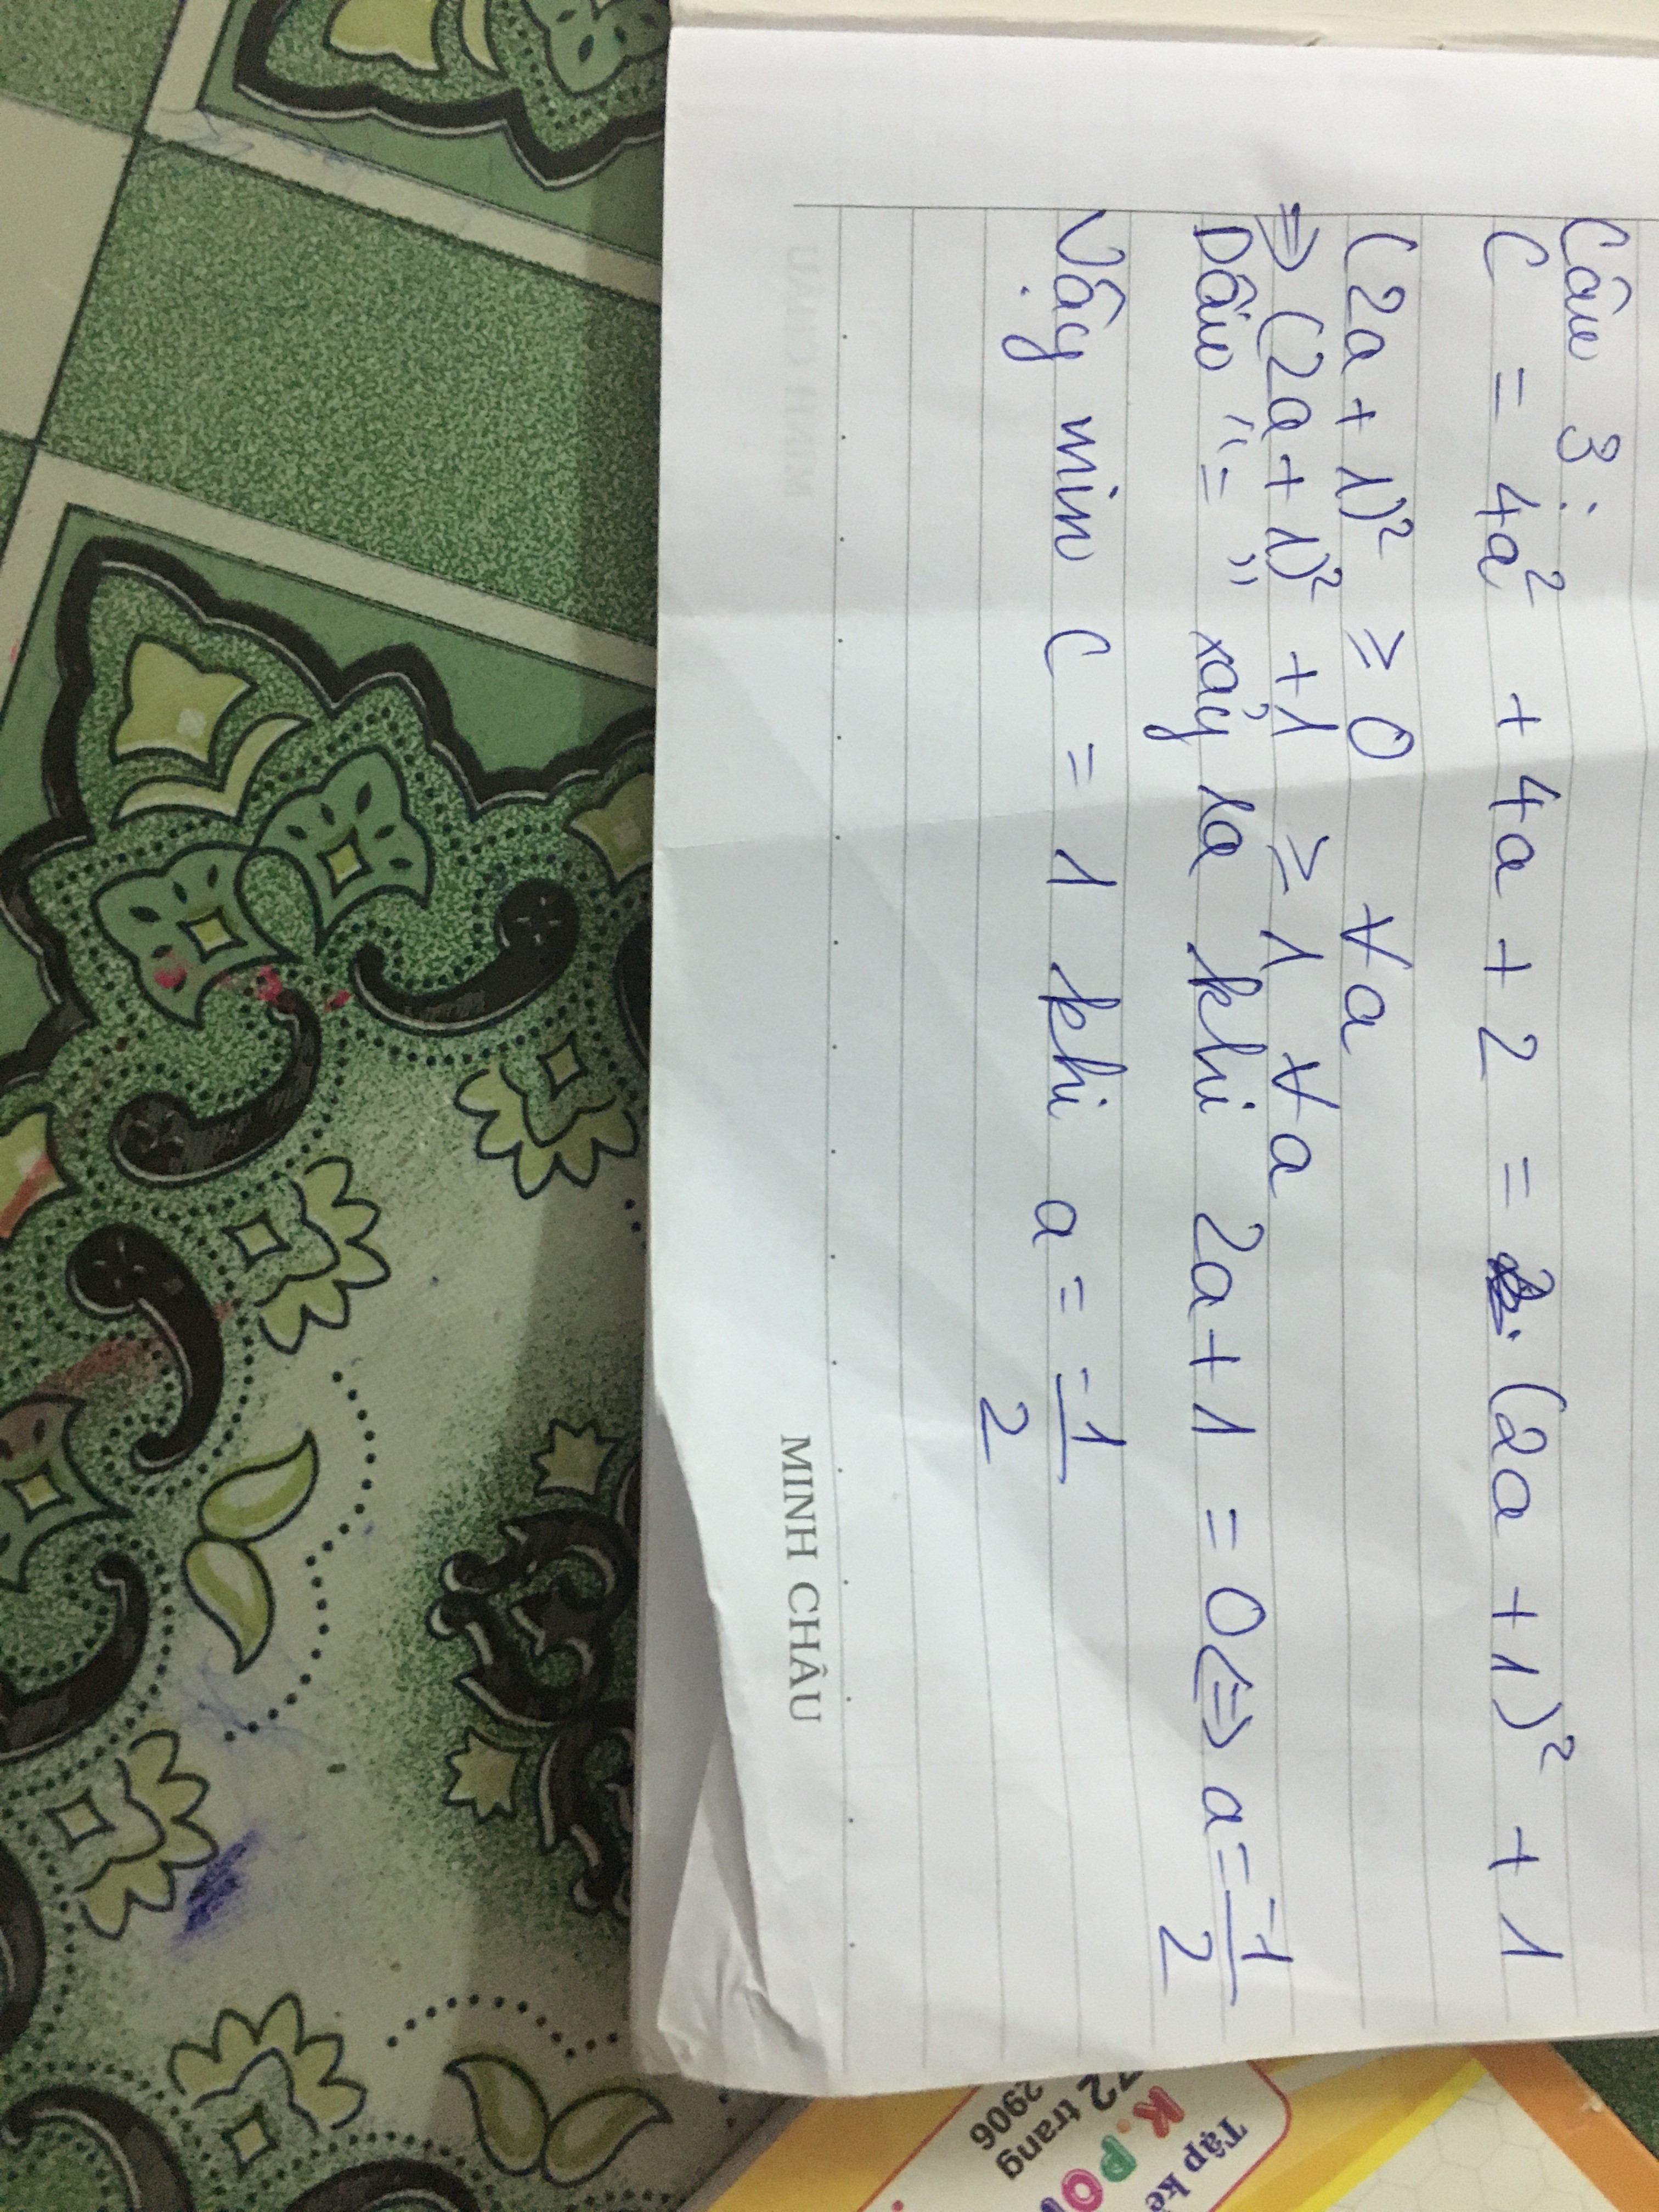 Câu 3:
C = 4a² + 4a + 2 = (2a + 1)² + 1
(2a + 1)² ≥ 0 ∀a
⇒ (2a + 1)² + 1 ≥ 1 ∀a
Dấu "=" xảy ra khi 2a + 1 = 0 ⇔ a = -1/2
Vậy min C = 1 khi a = -1/2
MINH CHÂU
Tập kẻ
K.PO
72 trang
2906